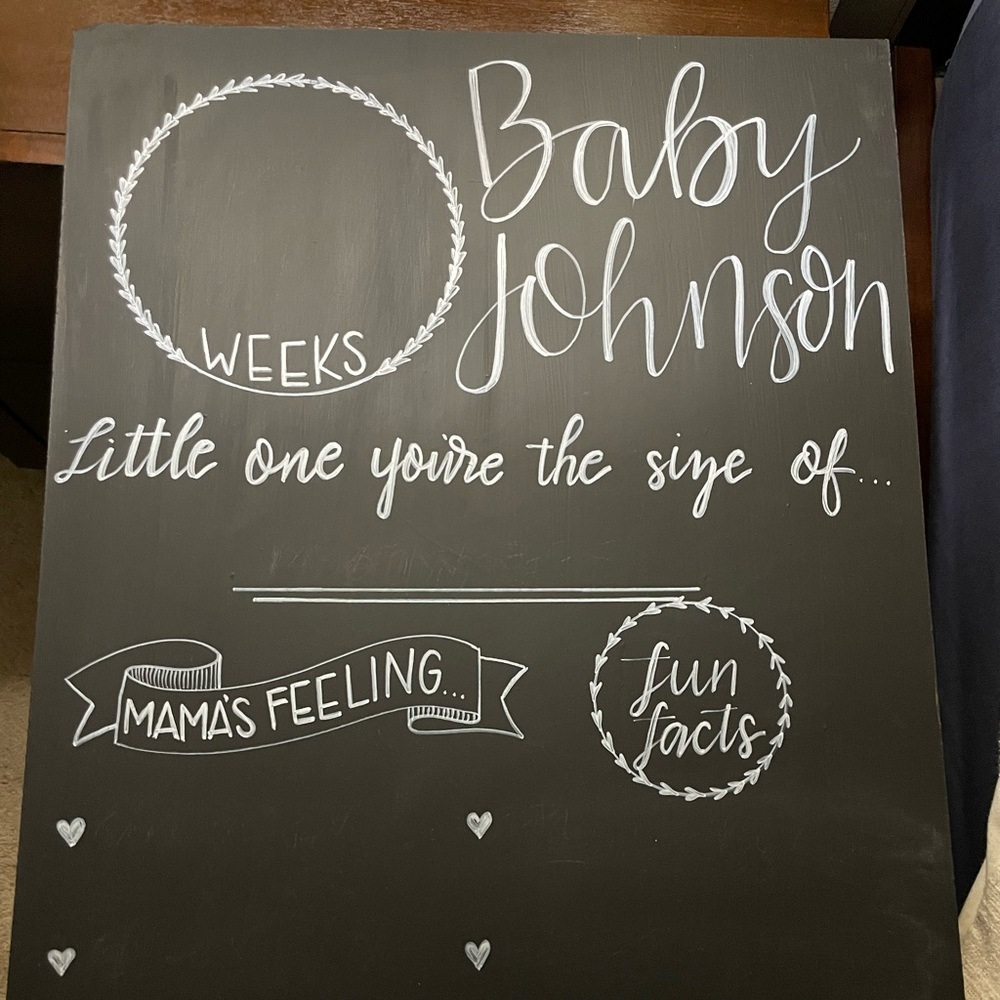 Baby
Johnson
WEEKS
Little one you're the size of...
MAMA'S FEELING...
fun
facts